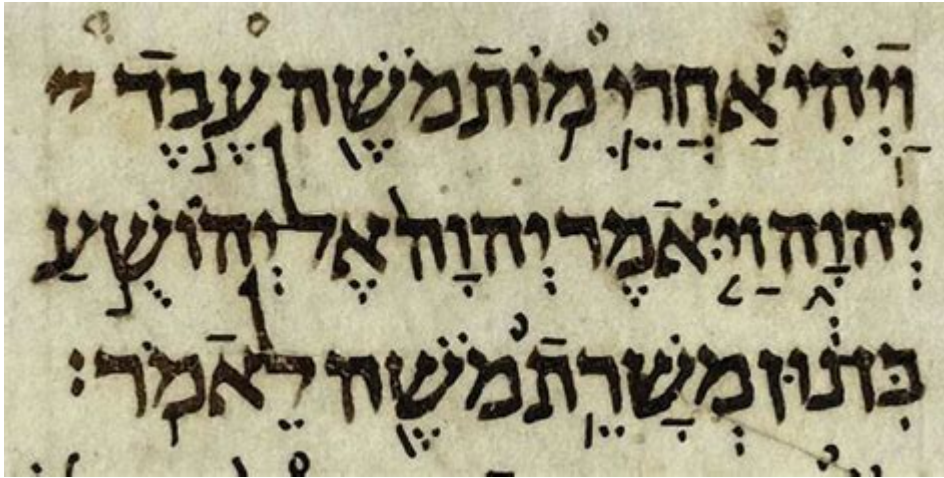 וַיְהִ֗י אַחֲרֵי֙ מ֣וֹת מֹשֶׁ֔ה עֶ֖בֶד י
יְהוָ֑ה וַיֹּ֤אמֶר יְהוָה֙ אֶל יְהוֹשֻׁ֣עַ
בִּן נ֔וּן מְשָׁרֵ֥ת מֹשֶׁ֖ה לֵאמֹֽר׃